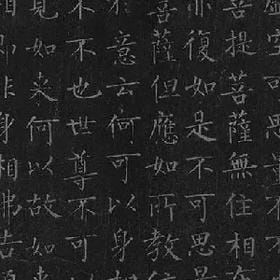 虛空可思
菩提菩薩無住相布
亦復如是不可思量
菩薩但應如所教住
於意云何可以身相
不不也世尊不可以
見如來何以故如來
相即非身相佛告